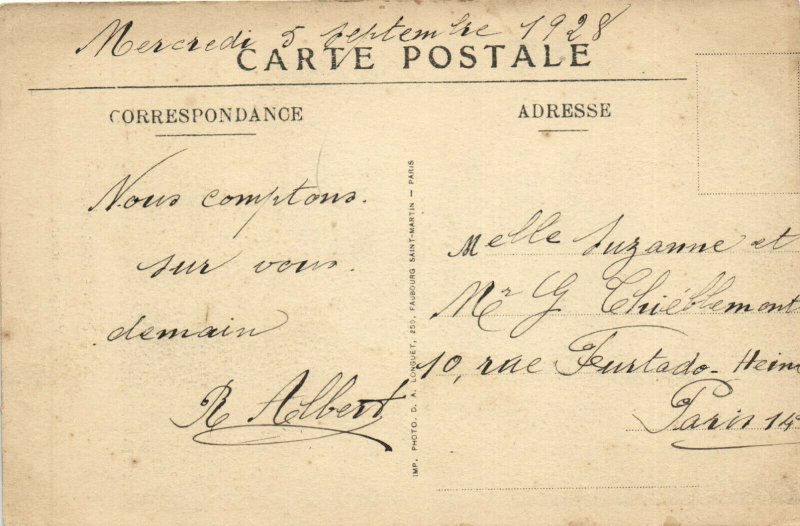 Mercredi 5 Septembre 1928
CARTE POSTALE
CORRESPONDANCE
ADRESSE
Nous comptons
sur vous
demain
R Albert
IMP. PHOTO. D. A. LONGUET, 250, FAUBOURG SAINT-MARTIN — PARIS
Melle Suzanne et
Mr G Thiéblemont
10, rue Furtado-Hein
Paris 14